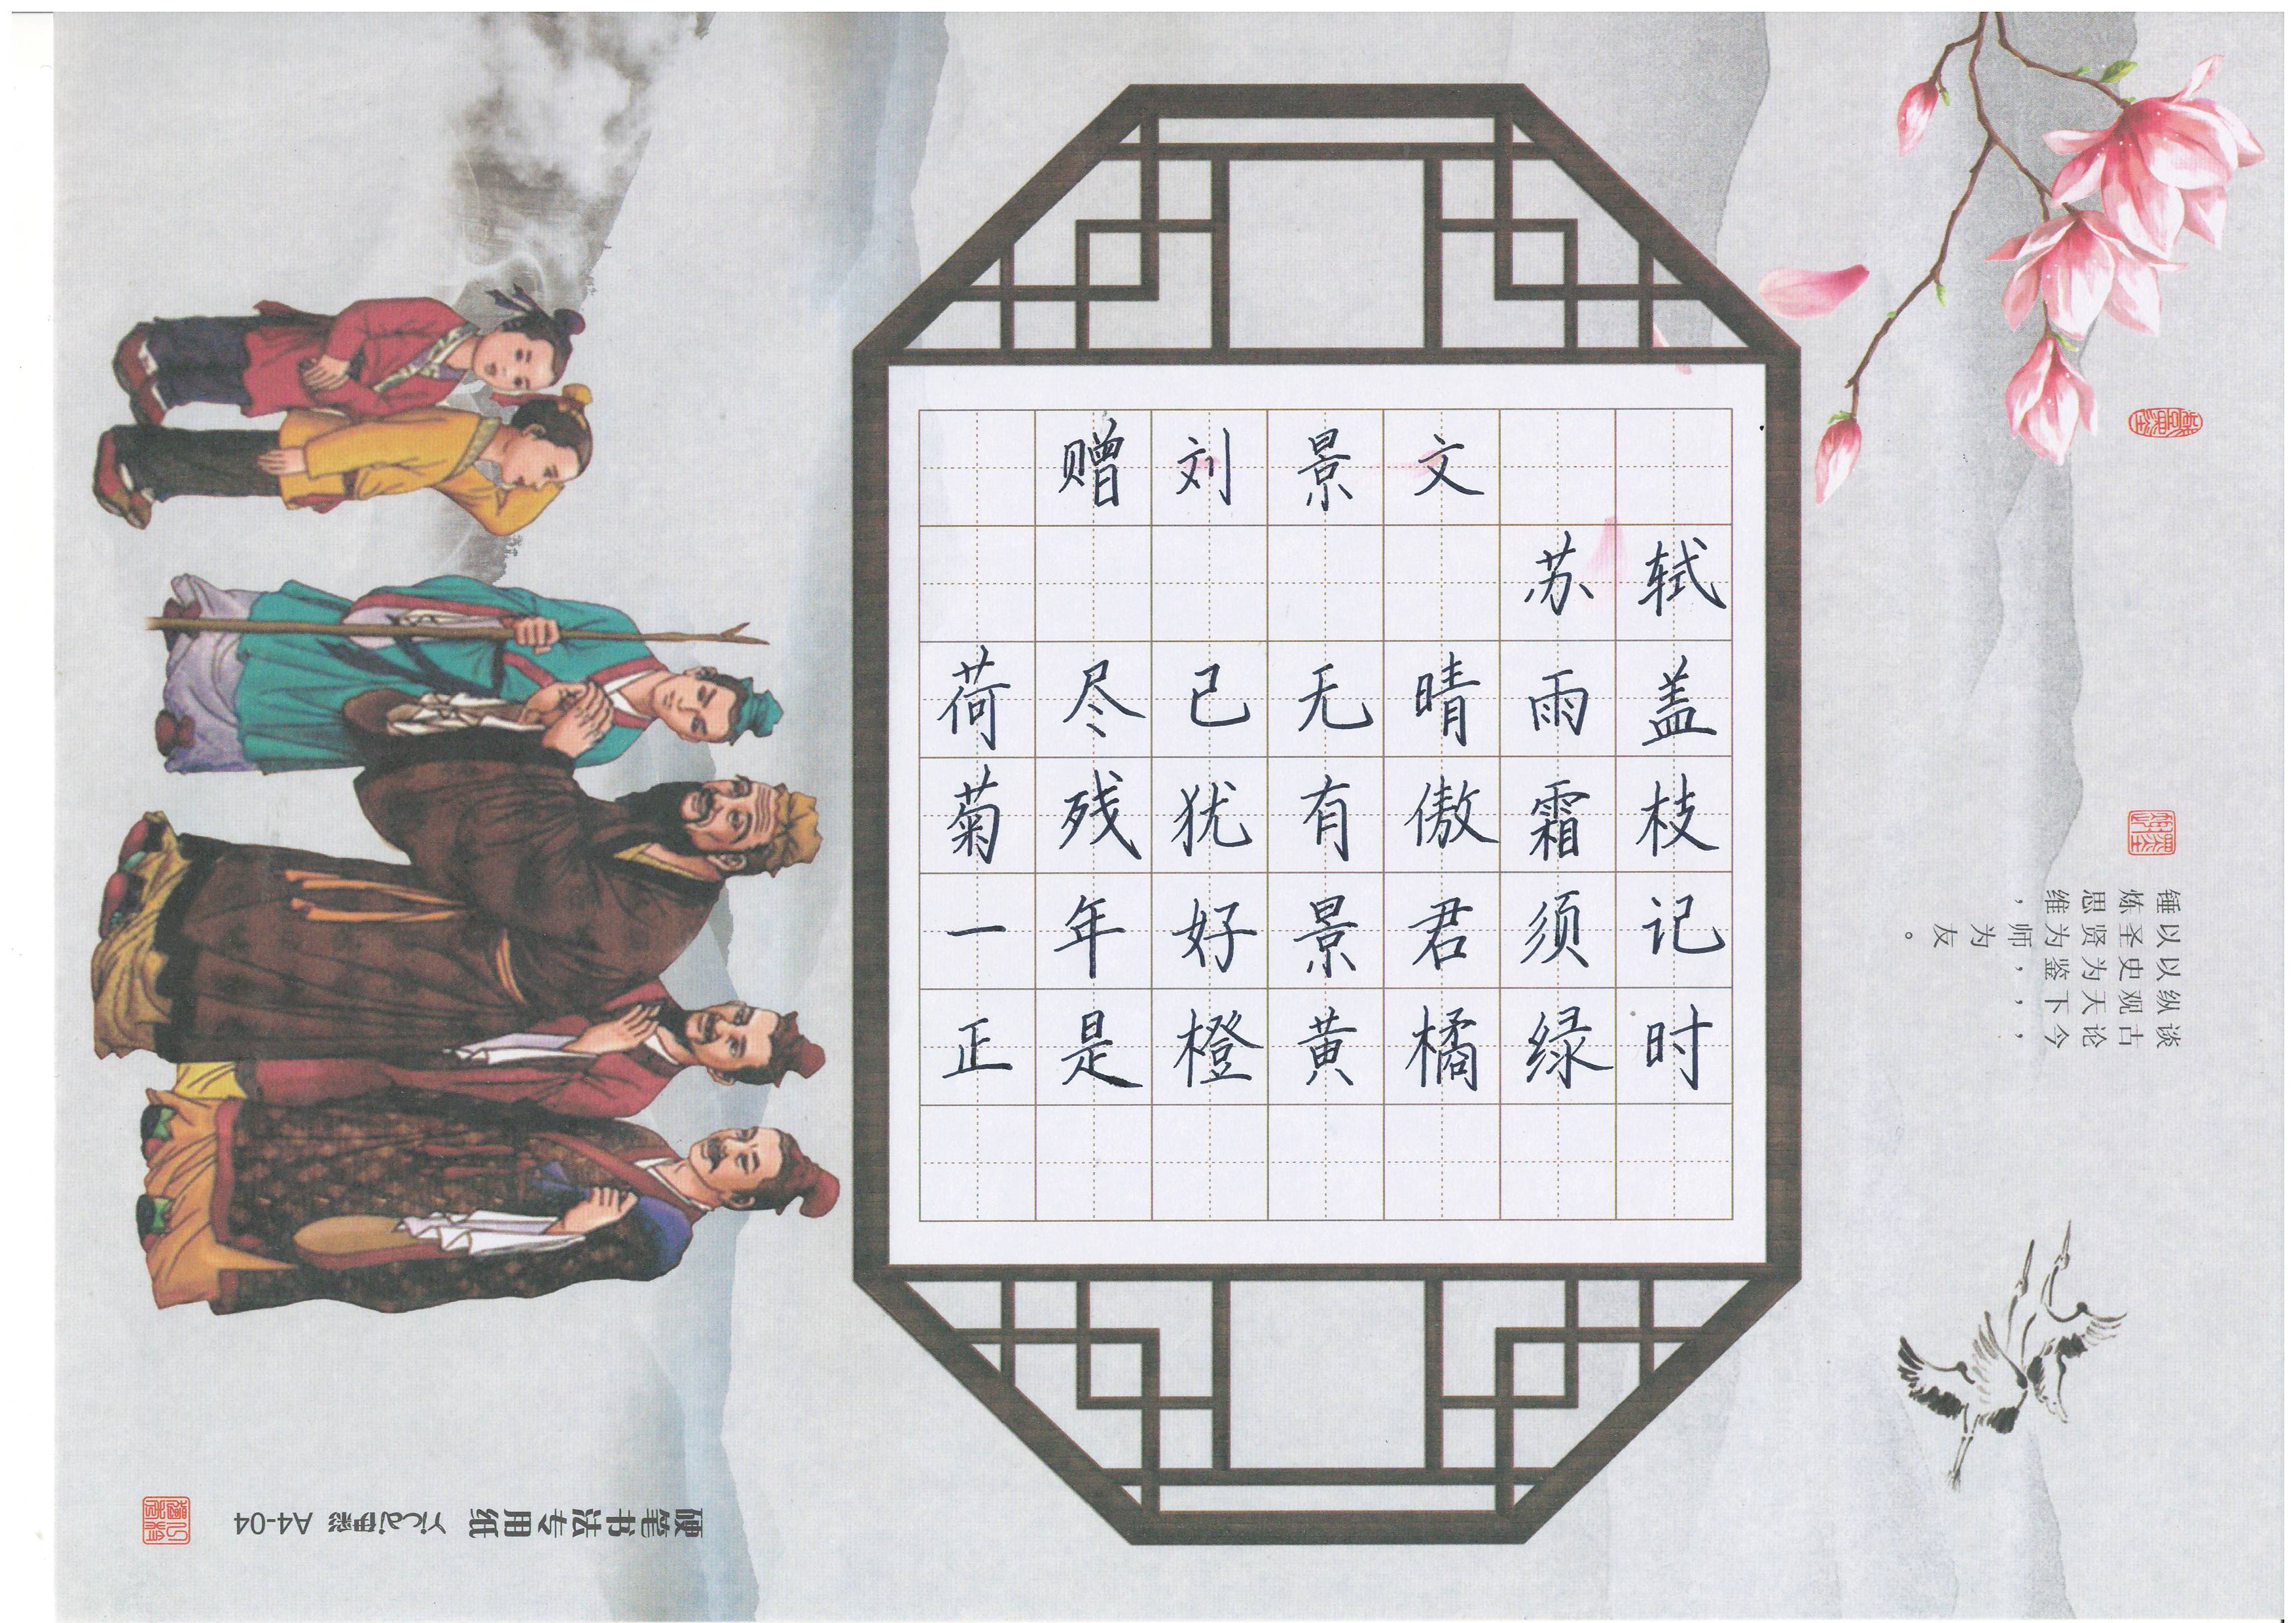 赠刘景文
苏轼
荷尽已无晴雨盖
菊残犹有傲霜枝
一年好景君须记
正是橙黄橘绿时
谈古论今，
纵观天下，
以史为鉴，
以圣贤为师为友。
锤炼思维，
硬笔书法专用纸 A4-04